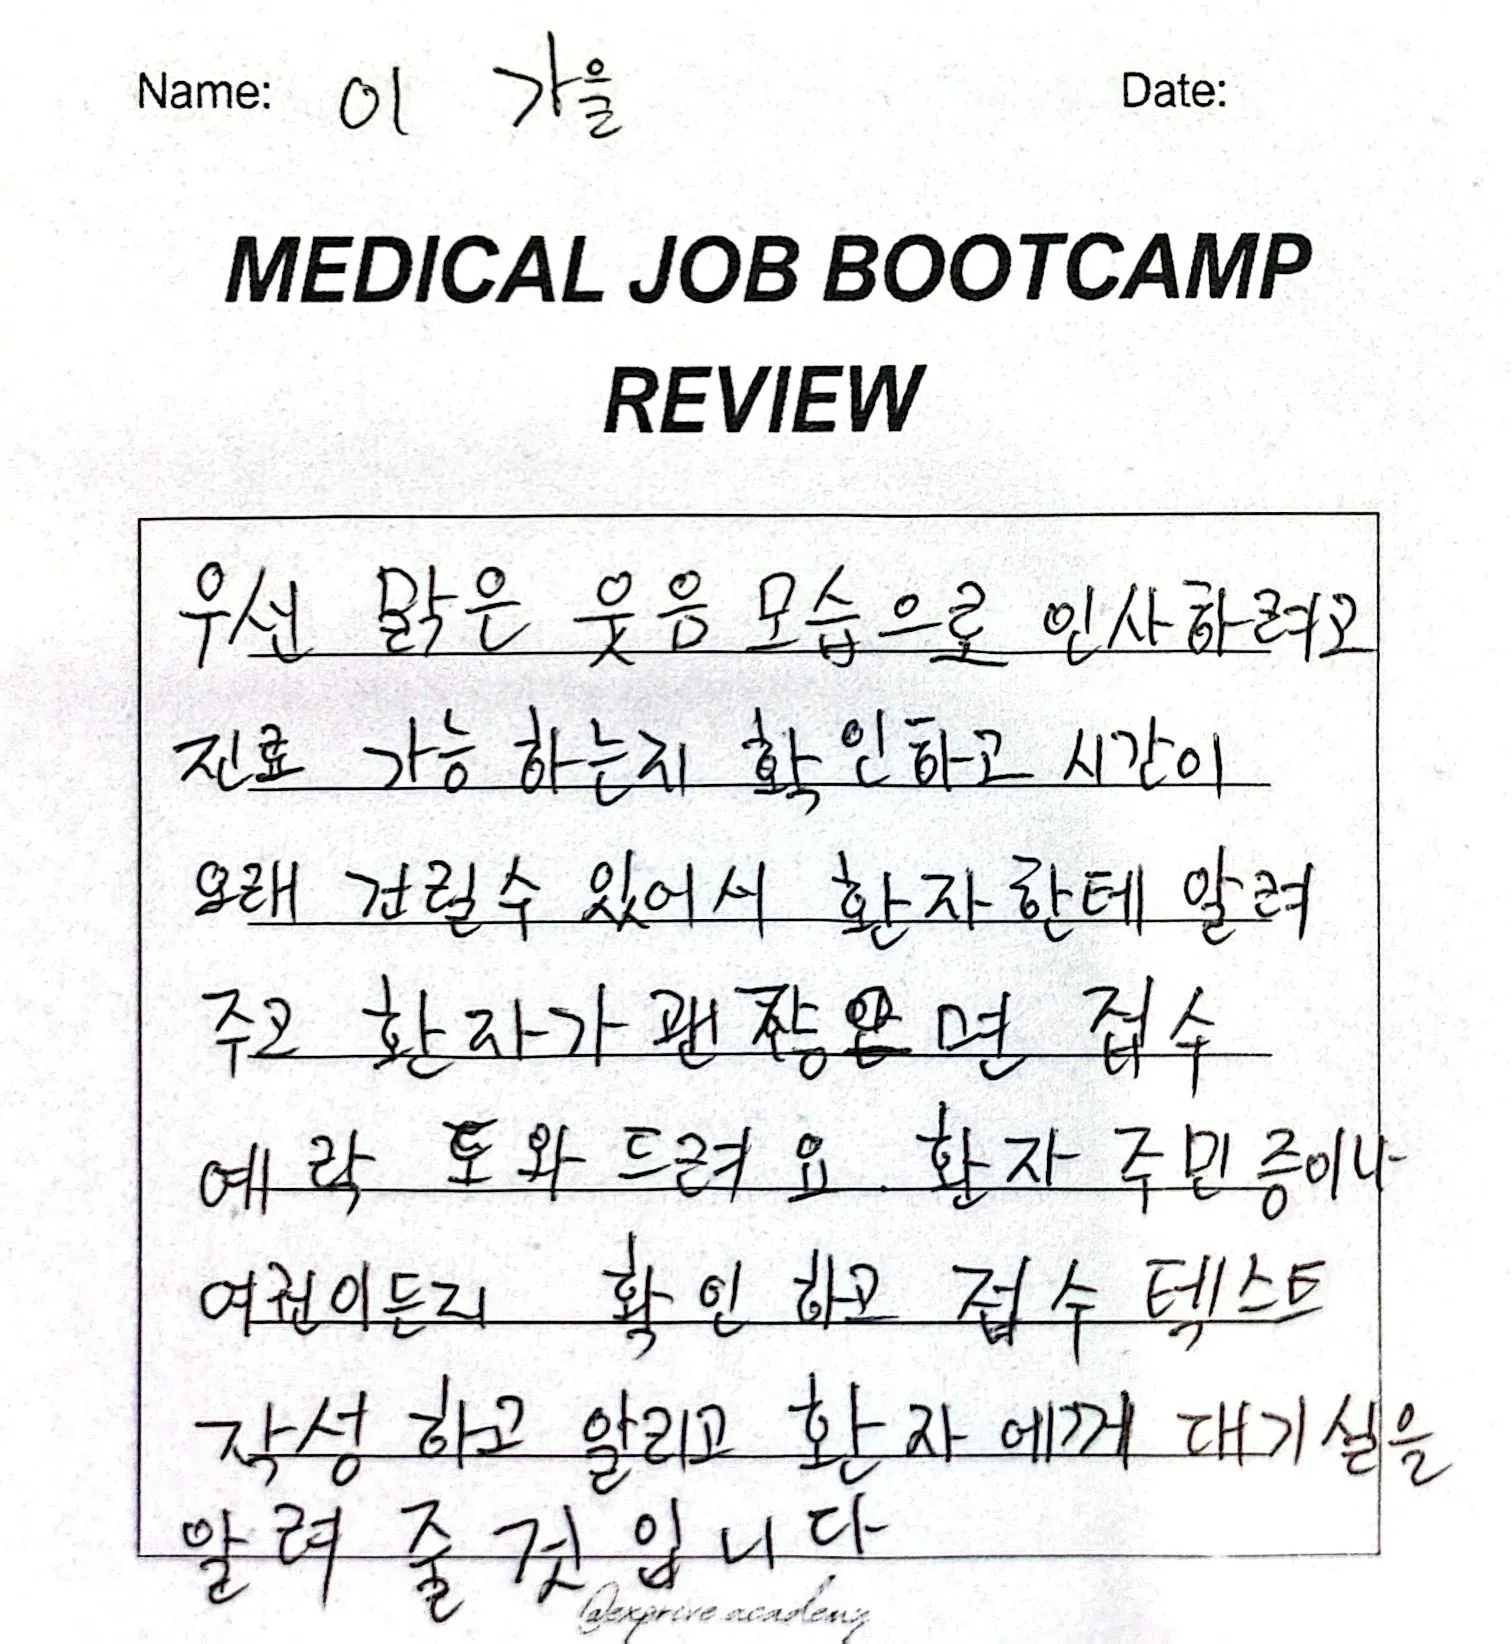 Name: 이 가을 Date:
MEDICAL JOB BOOTCAMP
REVIEW
우선 맑은 웃음 모습으로 인사하려고
진료 가능 하는지 확인하고 시간이
오래 건릴수 있어서 환자한테 알려
주고 환자가 면 접수
예락 도와 드려 요. 환자 주민증이나
여권이든리 확인 하고 접수 텍스트
작성 하고 알리고 환자에게 대기실을
알려 줄 것 입니다
@exprive.academy